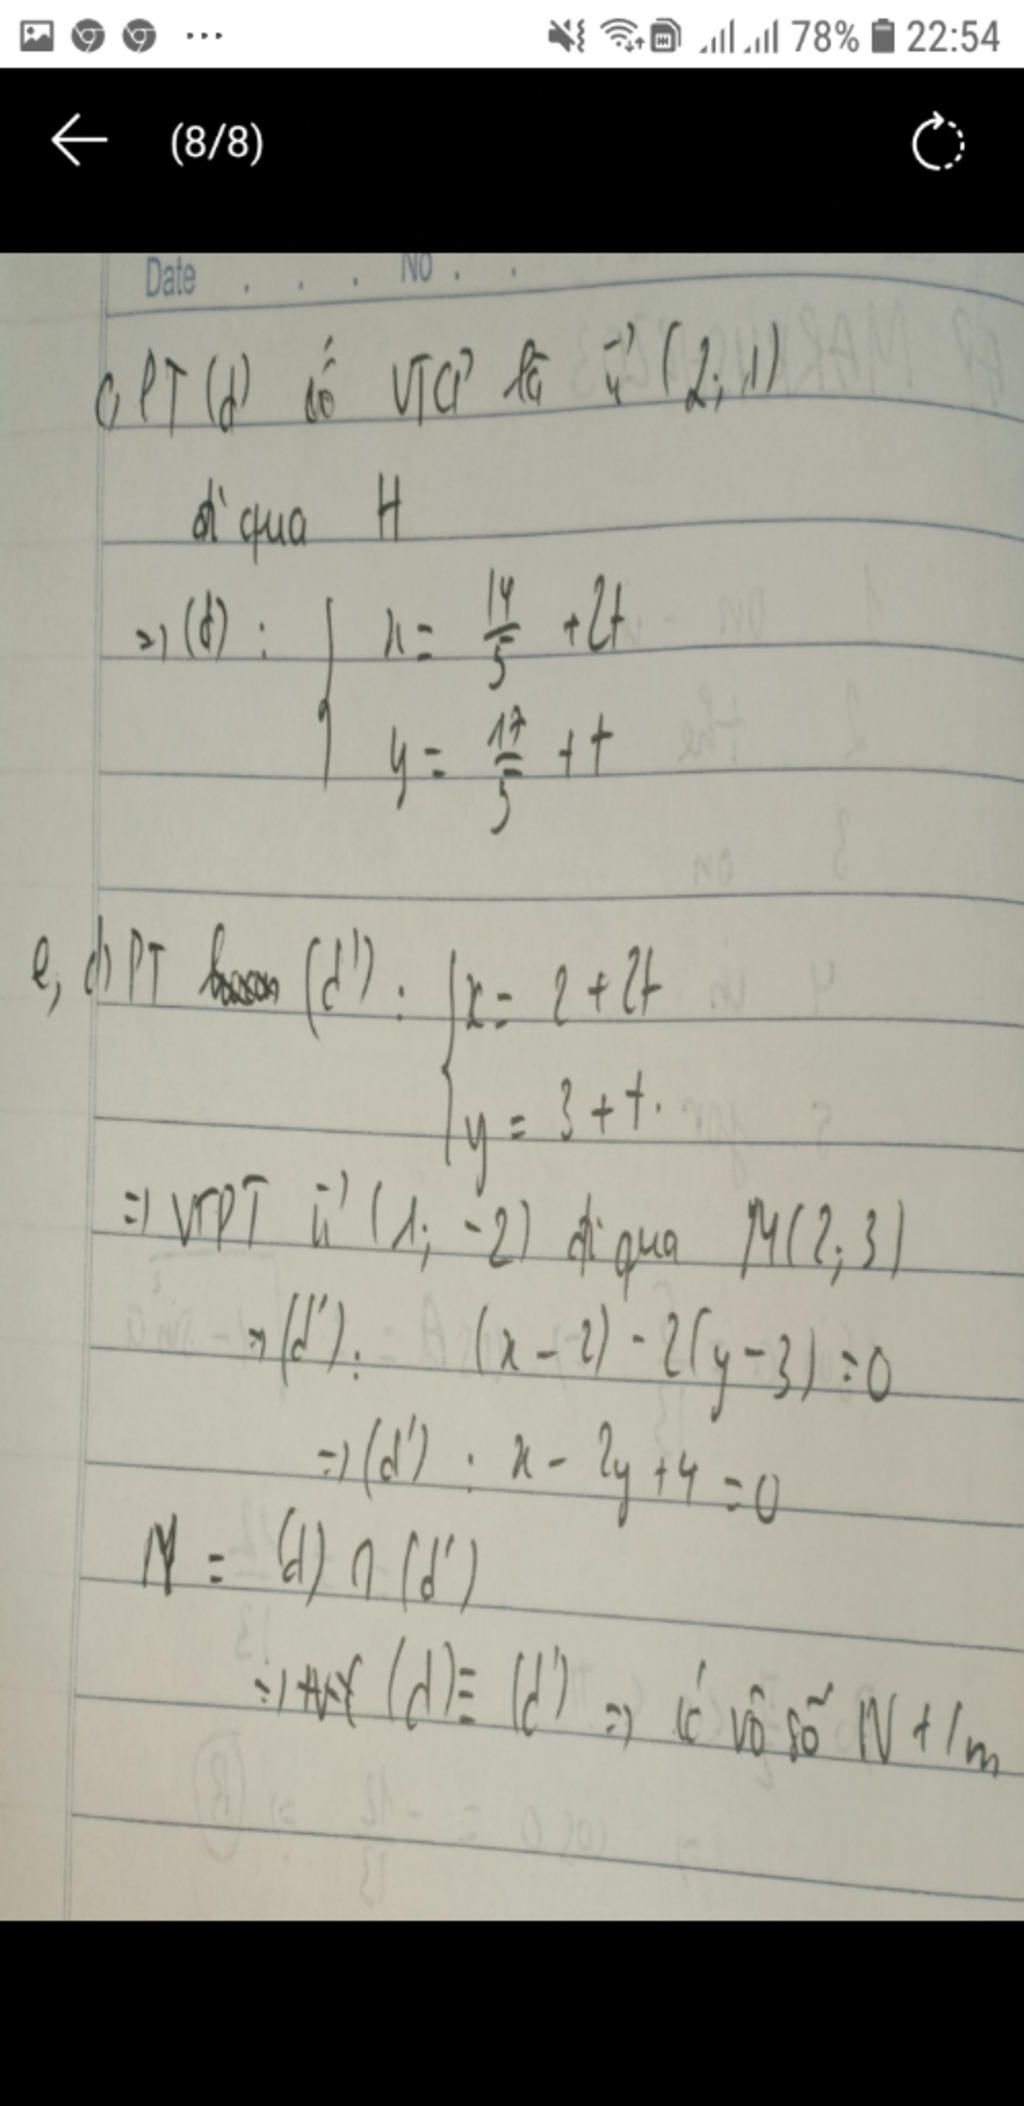 78% 22:54
(8/8)
Date . . . No . .
PT (d) có VTCP là u→ (2; 1)
đi qua H
=> (d) : { x = 14/5 + 2t
y = 17/5 + t
e, PT (d') : { x = 2 + 2t
y = 3 + t.
=> VTPT u→ (1; -2) đi qua M(2; 3)
=> (d') : (x - 2) - 2(y - 3) = 0
=> (d') : x - 2y + 4 = 0
= (d) ∩ (d')
=> (d) ≡ (d') => có vô số N t/m